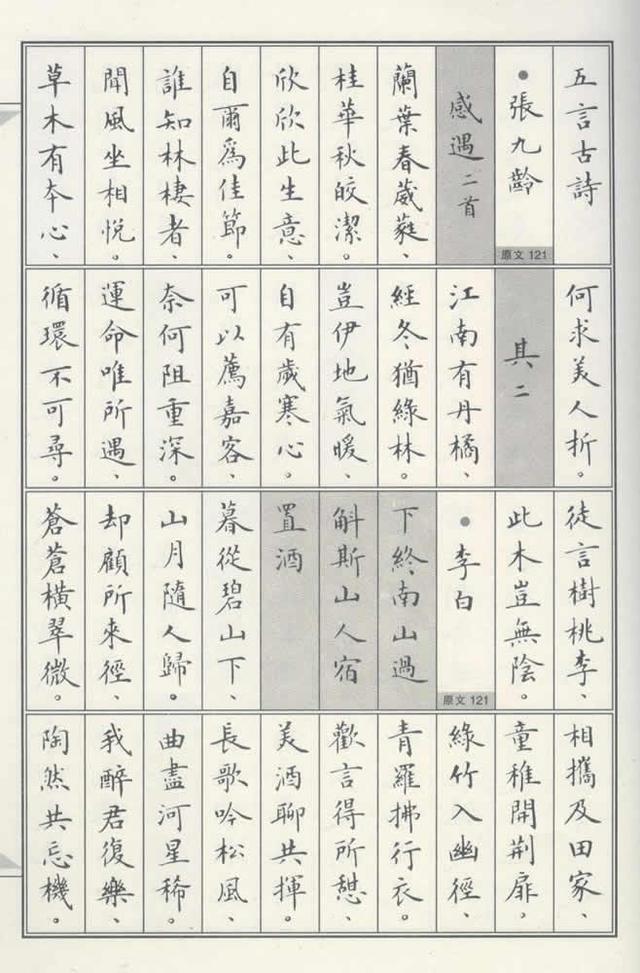 五言古詩
•張九齡
原文121
感遇二首
蘭葉春葳蕤、
桂華秋皎潔。
欣欣此生意、
自爾為佳節。
誰知林棲者、
聞風坐相悅。
草木有本心、
何求美人折。
其二
江南有丹橘、
經冬猶綠林。
豈伊地氣暖、
自有歲寒心。
可以薦嘉客、
奈何阻重深。
運命唯所遇、
循環不可尋。
徒言樹桃李、
此木豈無陰。
•李白
原文121
下終南山過
斛斯山人宿
置酒
暮從碧山下、
山月隨人歸。
却顧所來徑、
蒼蒼橫翠微。
相攜及田家、
童稚開荆扉。
綠竹入幽徑、
青羅拂行衣。
歡言得所憩、
美酒聊共揮。
長歌吟松風、
曲盡河星稀。
我醉君復樂、
陶然共忘機。